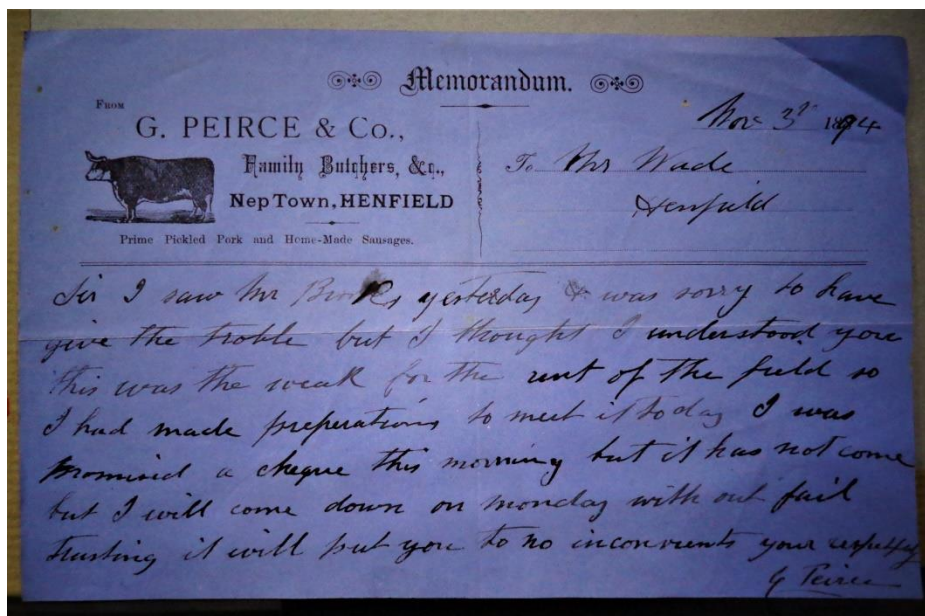 Memorandum.
From
G. PEIRCE & Co.,
Family Butchers, &c.,
Nep Town, HENFIELD
Prime Pickled Pork and Home-Made Sausages.
Nov 3rd 1894
To Mr Wade
Henfield
Sir I saw Mr Brooks yesterday & was sorry to have
give the troble but I thought I understood you
this was the weak for the rent of the field so
I had made preperations to meet it to day I was
promised a cheque this morning but it has not come
but I will come down on monday with out fail
trusting it will put you to no inconvients your respetfuly
G Peirce